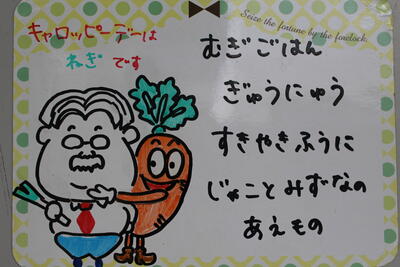 Seize the fortune by the forelock.
キャロッピーデーは
ねぎです
むぎごはん
ぎゅうにゅう
すきやきふうに
じゃことみずなの
あえもの